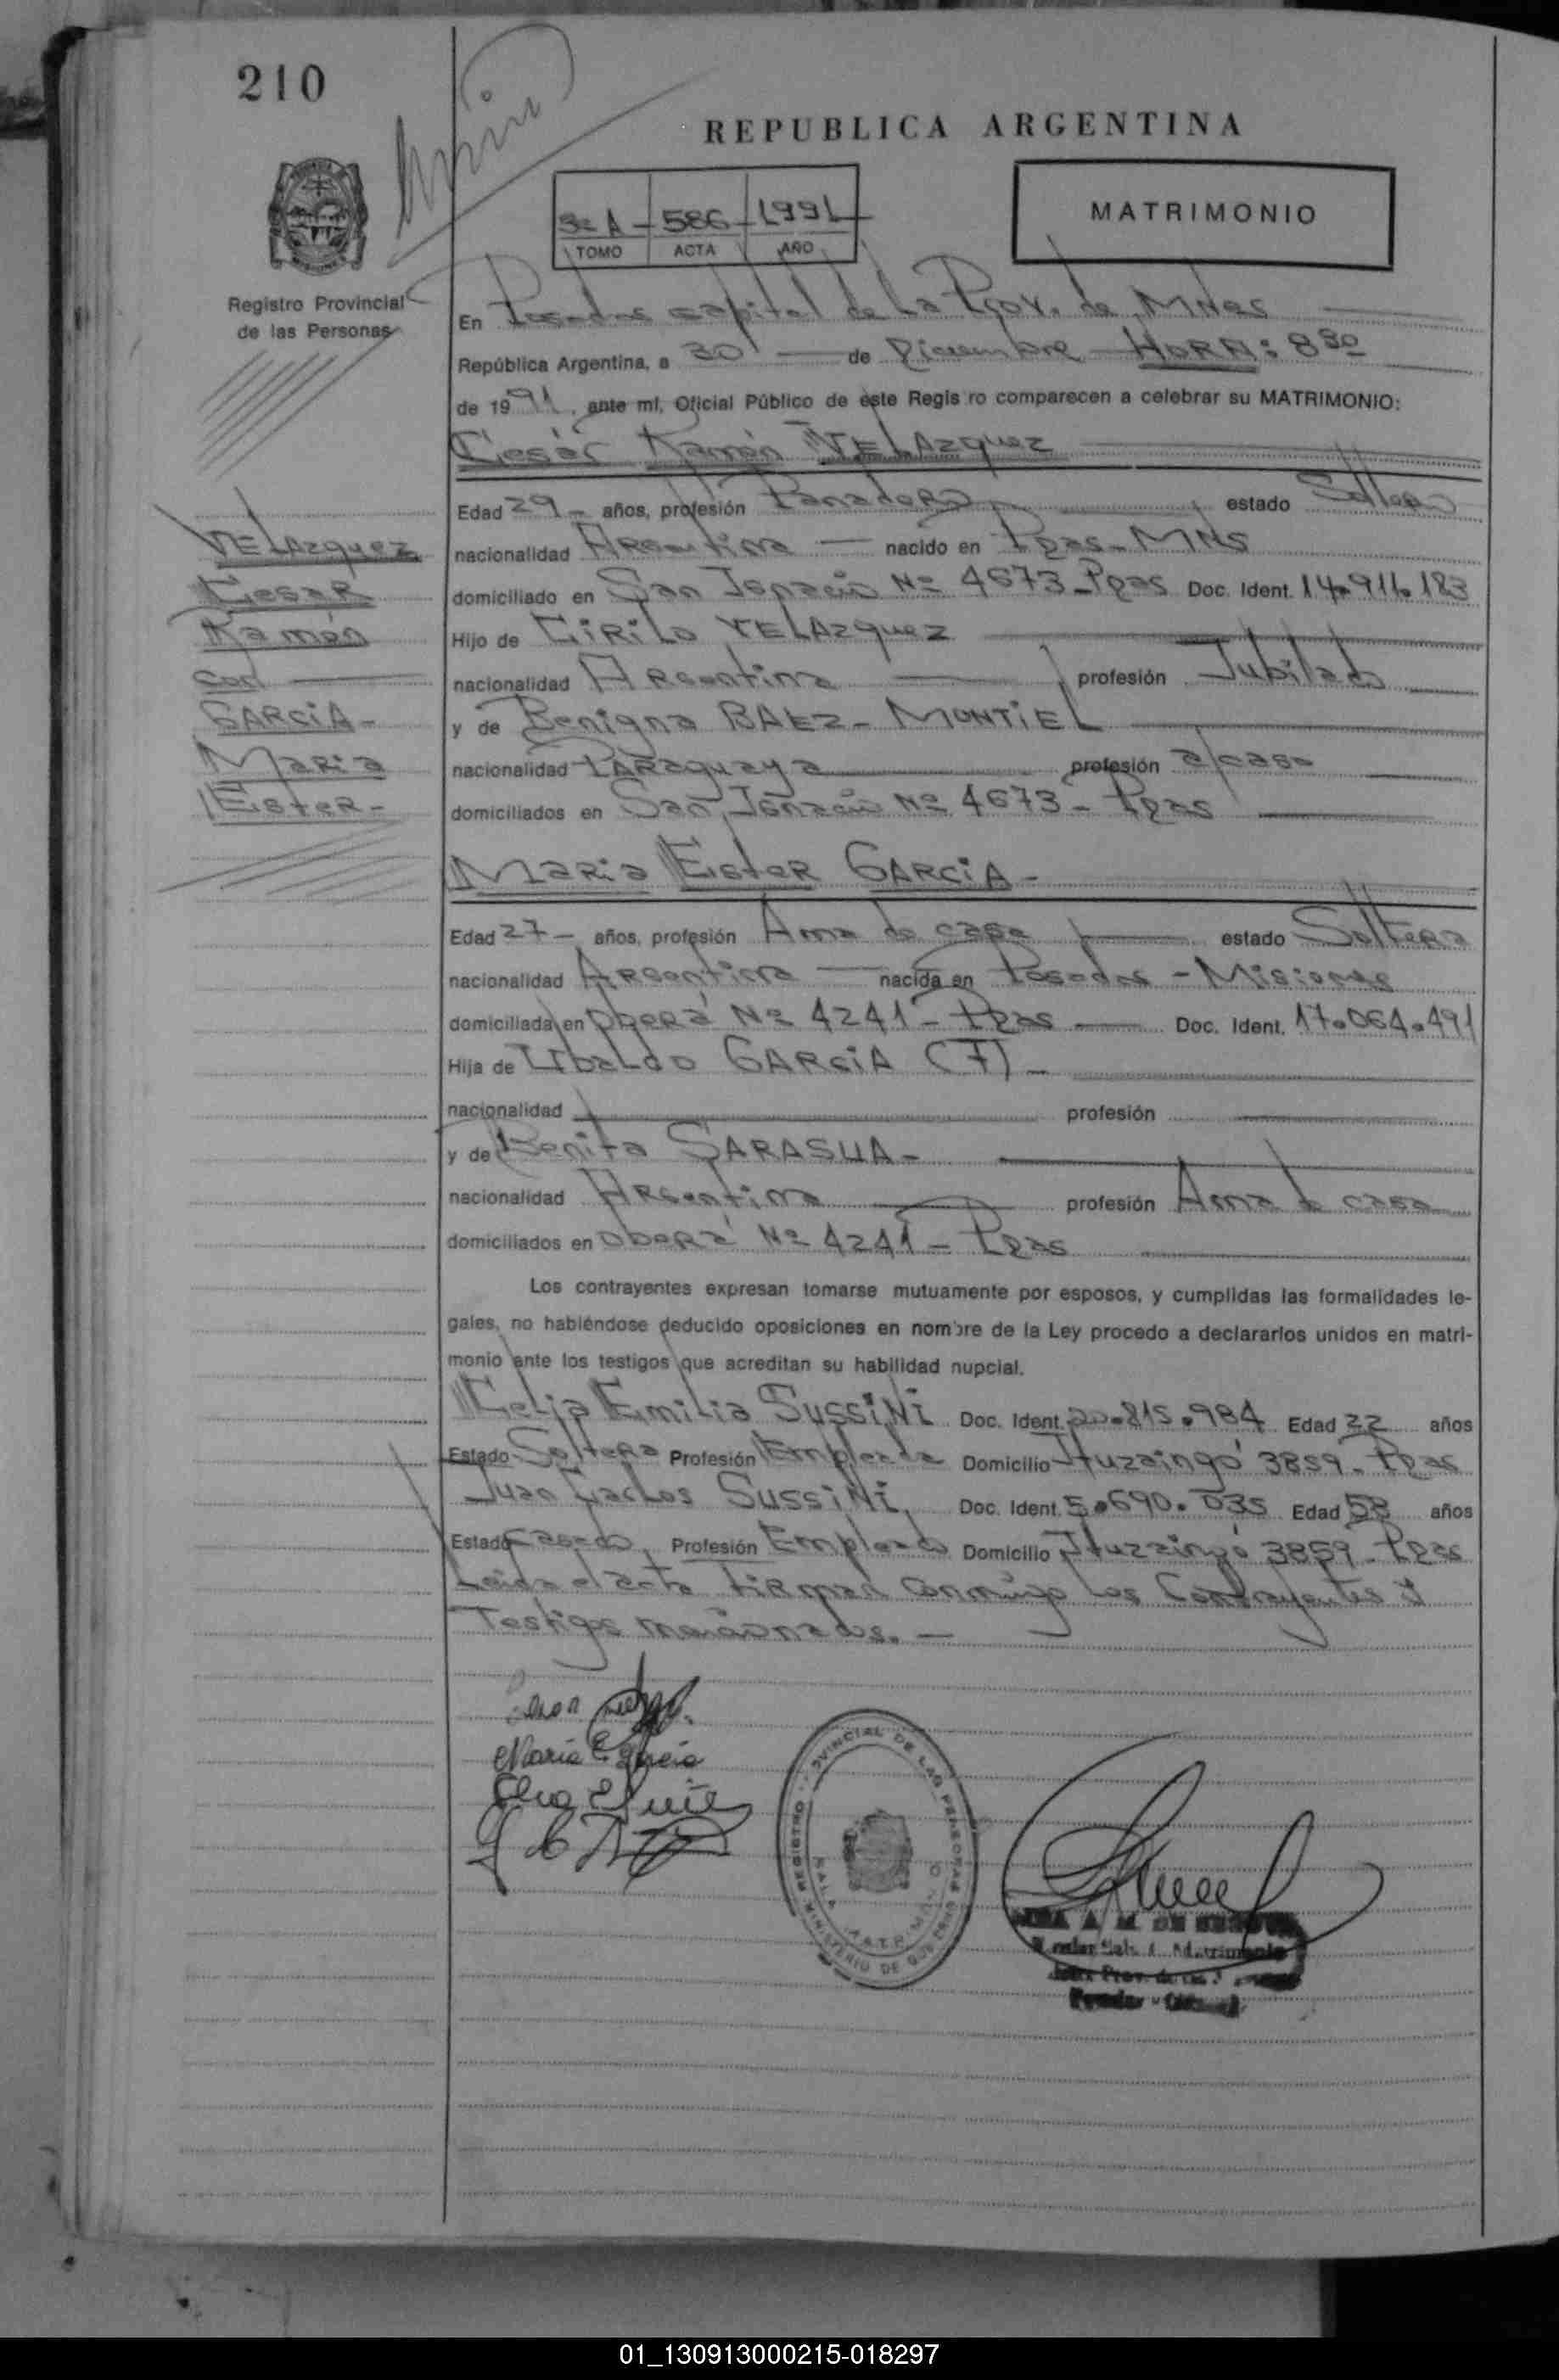 210
REPUBLICA ARGENTINA
MATRIMONIO
3º A - 586 - 1991
TOMO ACTA AÑO
Registro Provincial
de las Personas
En Posadas capital de La Prov. de Mnes
República Argentina, a 30 de Diciembre HORA: 8 30
de 19 91, ante mí, Oficial Público de este Regis ro comparecen a celebrar su MATRIMONIO:
Cesar Ramón VELAzquez
Edad 29 - años, profesión Panadero estado Soltero
VELAzquez
Cesar
Ramón
con
GARCiA -
Maria
Ester -
nacionalidad Argentina nacido en Pdas - MNS
domiciliado en San Ignacio Nº 4673 - Pdas Doc. Ident. 14.911.183
Hijo de CiRiLo VELAzquez
nacionalidad Argentina profesión Jubilado
y de Benigna BAEz - MONTiEL
nacionalidad PARaguaya profesión a/casa
domiciliados en San Ignacio Nº 4673 - Pdas
Maria Ester GARCiA -
Edad 27 - años, profesión Ama de casa estado Soltera
nacionalidad Argentina nacida en Posadas - Misiones
domiciliada en Oberá Nº 4241 - Pdas Doc. Ident. 17.064.491
Hija de UbaLdo GARCiA (F) -
nacionalidad profesión
y de Benita SARASUA -
nacionalidad Argentina profesión Ama de casa
domiciliados en Oberá Nº 4241 - Pdas
Los contrayentes expresan tomarse mutuamente por esposos, y cumplidas las formalidades le-
gales, no habiéndose deducido oposiciones en nombre de la Ley procedo a declararlos unidos en matri-
monio ante los testigos que acreditan su habilidad nupcial.
Celia Emilia SussiNi Doc. Ident. 20.815.984 Edad 22 años
Estado Soltera Profesión Empleada Domicilio Ituzaingó 3859 - Pdas
Juan Carlos SussiNi, Doc. Ident. 5.690.035 Edad 58 años
Estado Casado, Profesión Empleado Domicilio Ituzaingó 3859 - Pdas
Leida el acta firman conmigo los Contrayentes y
Testigos mencionados. -
Maria E Garcia
REGISTRO PROVINCIAL DE LAS PERSONAS
SALA MATRIMONIO
MINISTERIO DE GOBIERNO
01_130913000215-018297